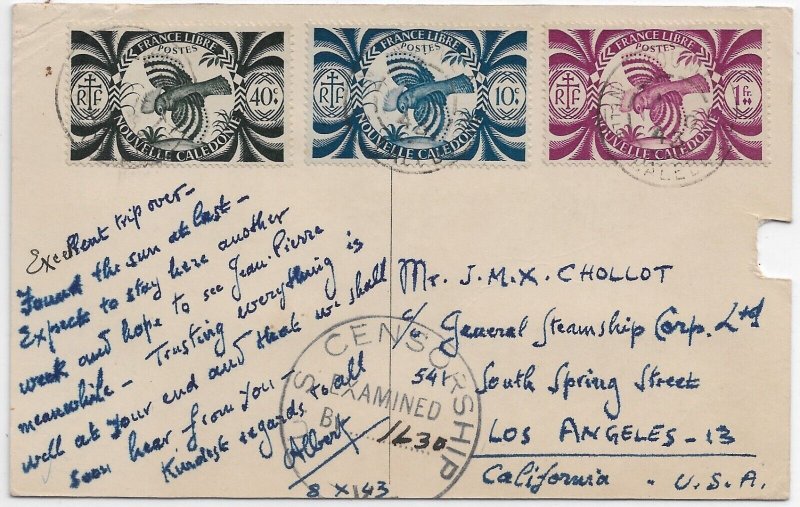 FRANCE LIBRE
POSTES
RF
40c
NOUVELLE CALÉDONIE
FRANCE LIBRE
POSTES
RF
10c
NOUVELLE CALÉDONIE
FRANCE LIBRE
POSTES
RF
1 Fr.
NOUVELLE CALÉDONIE
Excellent trip over-
Found the sun at last-
Expect to stay here another
week and hope to see Jean-Pierre
meanwhile- Trusting everything is
well at your end and that we shall
soon hear from you-
Kindest regards to all
Albert
8 X 43
Mr. J.M.X. CHOLLOT
c/o General Steamship Corp. Ltd
541 South Spring Street
LOS ANGELES-13
California. U.S.A.
CENSORSHIP
EXAMINED
BY
1630